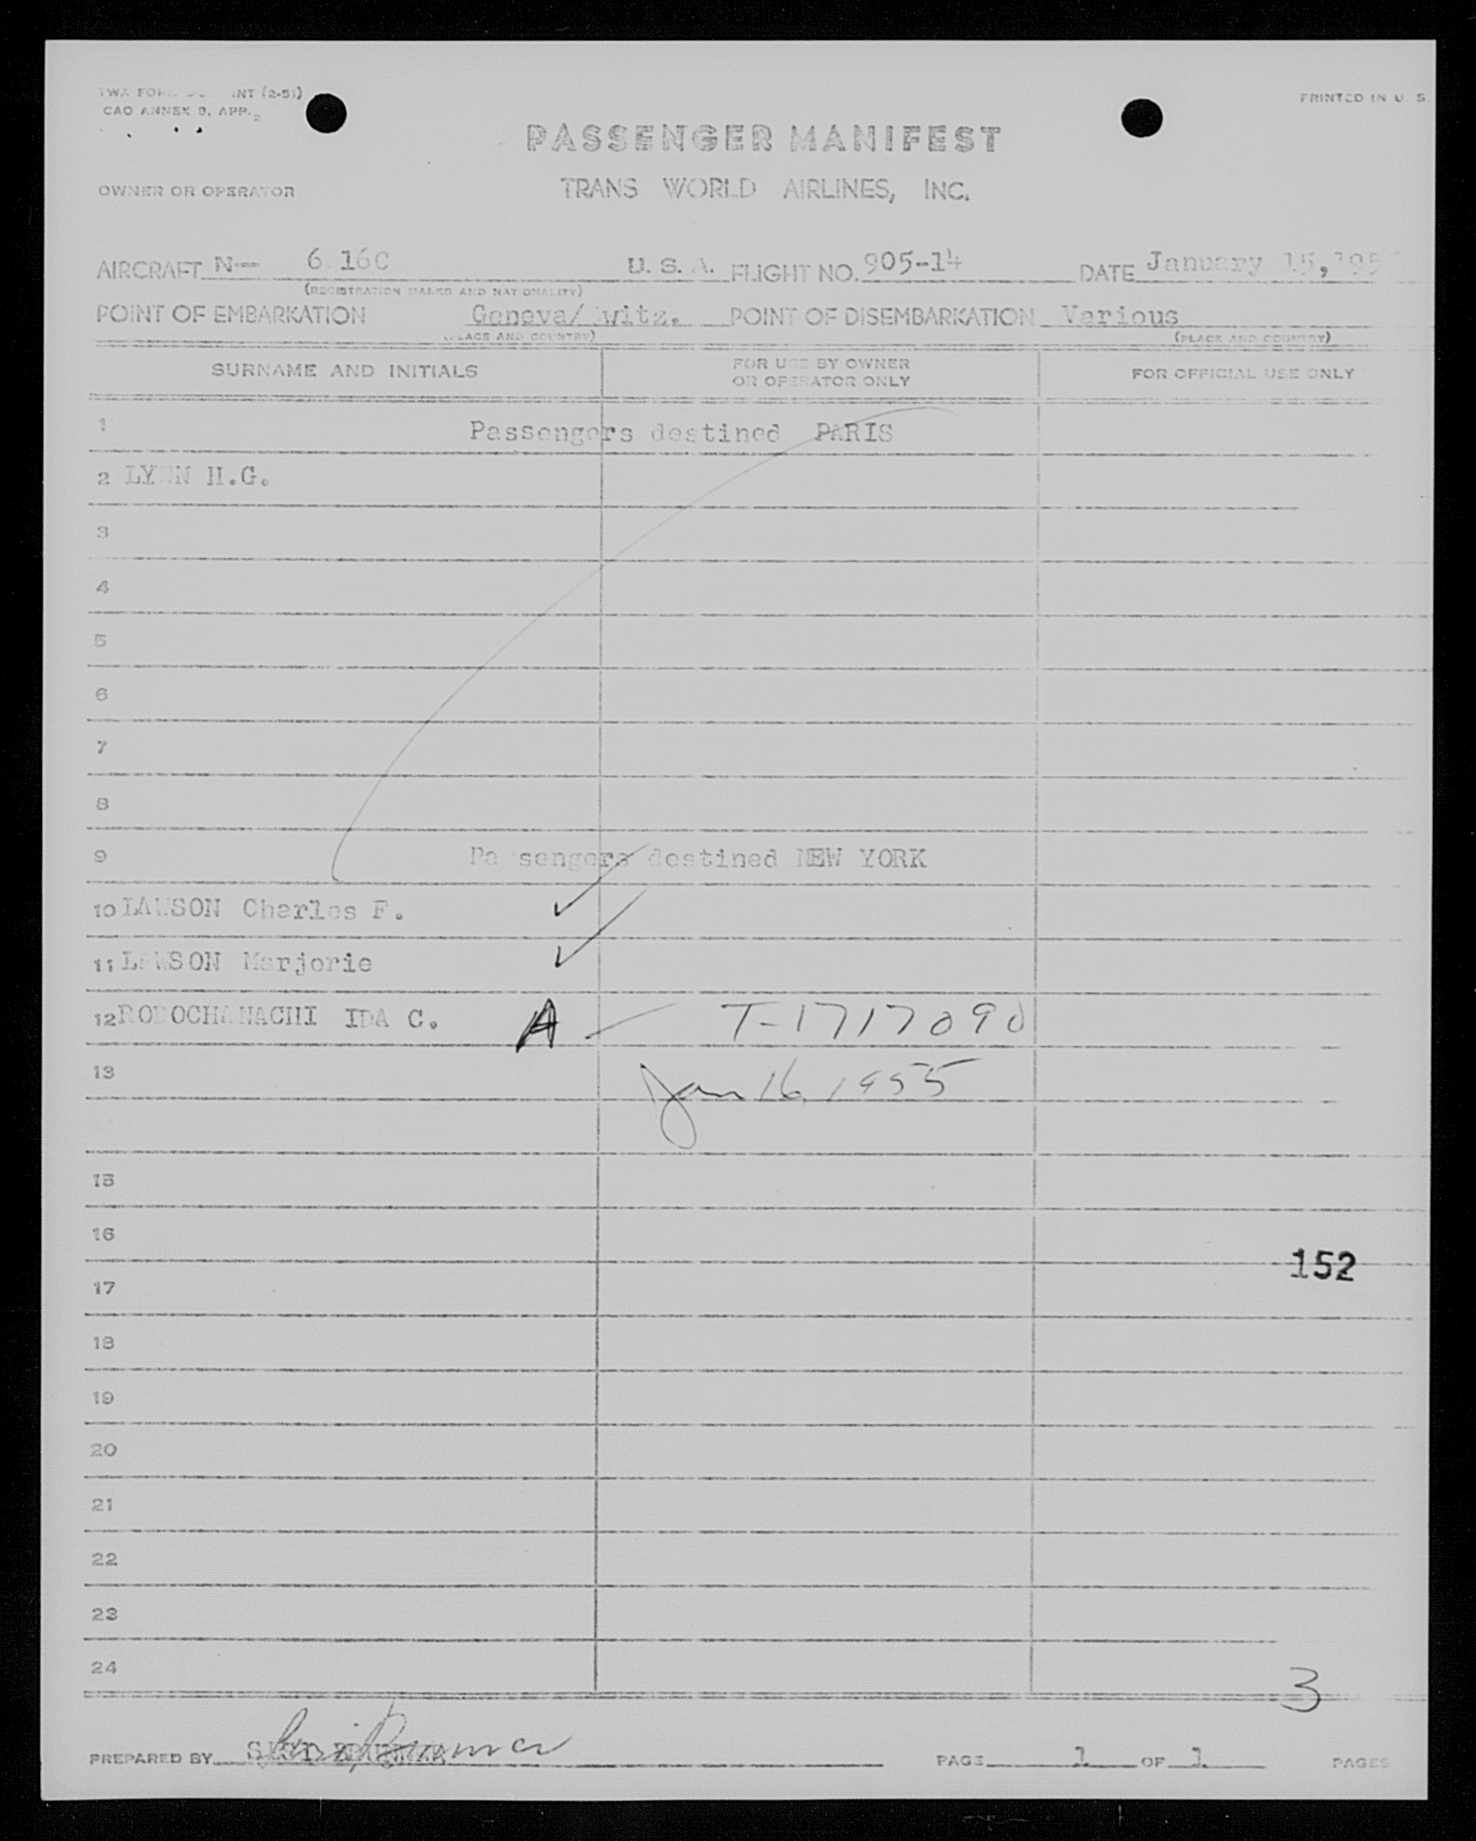 PRINTED IN U. S.
CAO ANNEX 9, APP. 2
PASSENGER MANIFEST
OWNER OR OPERATOR TRANS WORLD AIRLINES, INC.
AIRCRAFT N-- 6 16C U. S. A. FLIGHT NO. 905-14 DATE January 15, 195
(REGISTRATION MARKS AND NATIONALITY)
POINT OF EMBARKATION Geneva/ witz. POINT OF DISEMBARKATION Various
(PLACE AND COUNTRY) (PLACE AND COUNTRY)
SURNAME AND INITIALS FOR USE BY OWNER OR OPERATOR ONLY FOR OFFICIAL USE ONLY
1 Passengers destined PARIS
2 LY N H.G.
3
4
5
6
7
8
9 Passengers destined NEW YORK
10 LAWSON Charles F. ✓
11 LAWSON Marjorie ✓
12 RODOCHANACHI IDA C. A — T-1717090
13 Jan 16, 1955
15
16
152
17
18
19
20
21
22
23
24
3
PREPARED BY PAGE 1 OF 1 PAGES